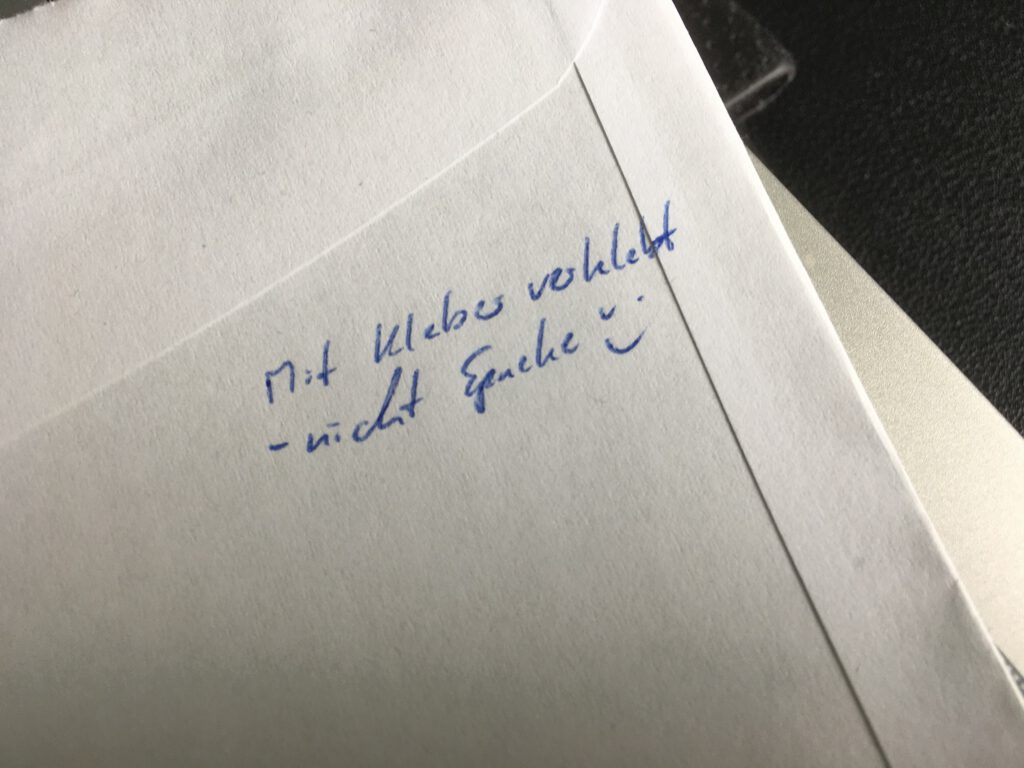 Mit Kleber verklebt
- nicht Spucke :)